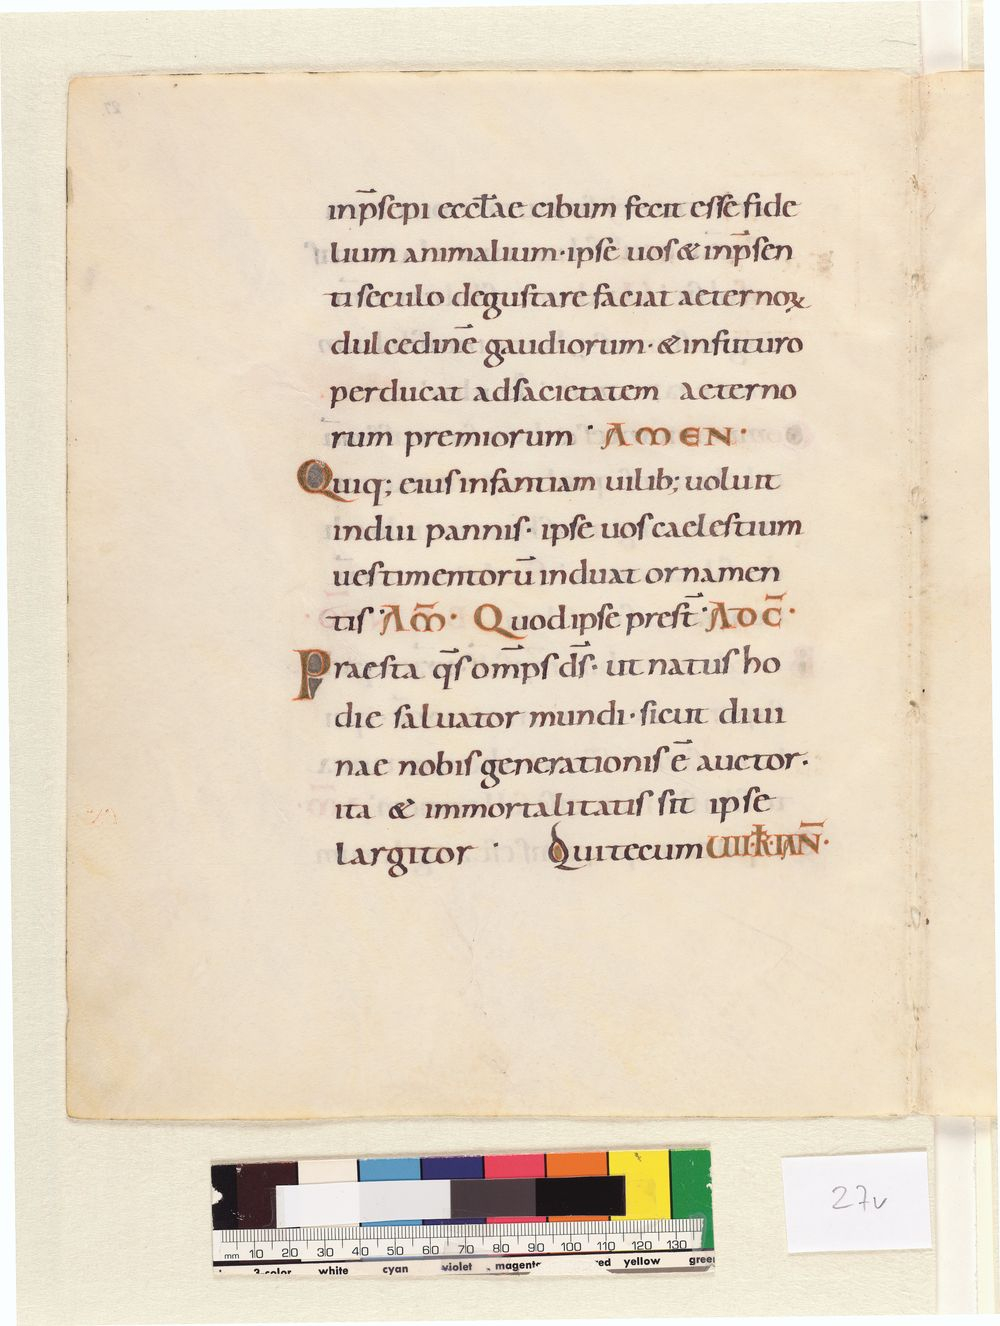 inp̄sepi eccl̄ae cibum fecit esse fide
lium animalium· ipse uos & inp̄sen
ti seculo degustare faciat aeternoꝝ
dulcedinē gaudiorum· & infuturo
perducat adsacietatem aeterno
rum premiorum · AMEN·
Quiq; eius infantiam uilib; uoluit
indui pannis· ipse uos caelestium
uestimentorū induat ornamen
tis· AM̄· Quod ipse prest̄· ADC̄·
Praesta q̄s omp̄s d̄s· ut natus ho
die saluator mundi· sicut diui
nae nobis generationis ē auctor·
ita & immortalitatis sit ipse
largitor · Qui tecum
27v
mm 10 20 30 40 50 60 70 80 90 100 110 120 130
3-color white cyan violet magenta red yellow green